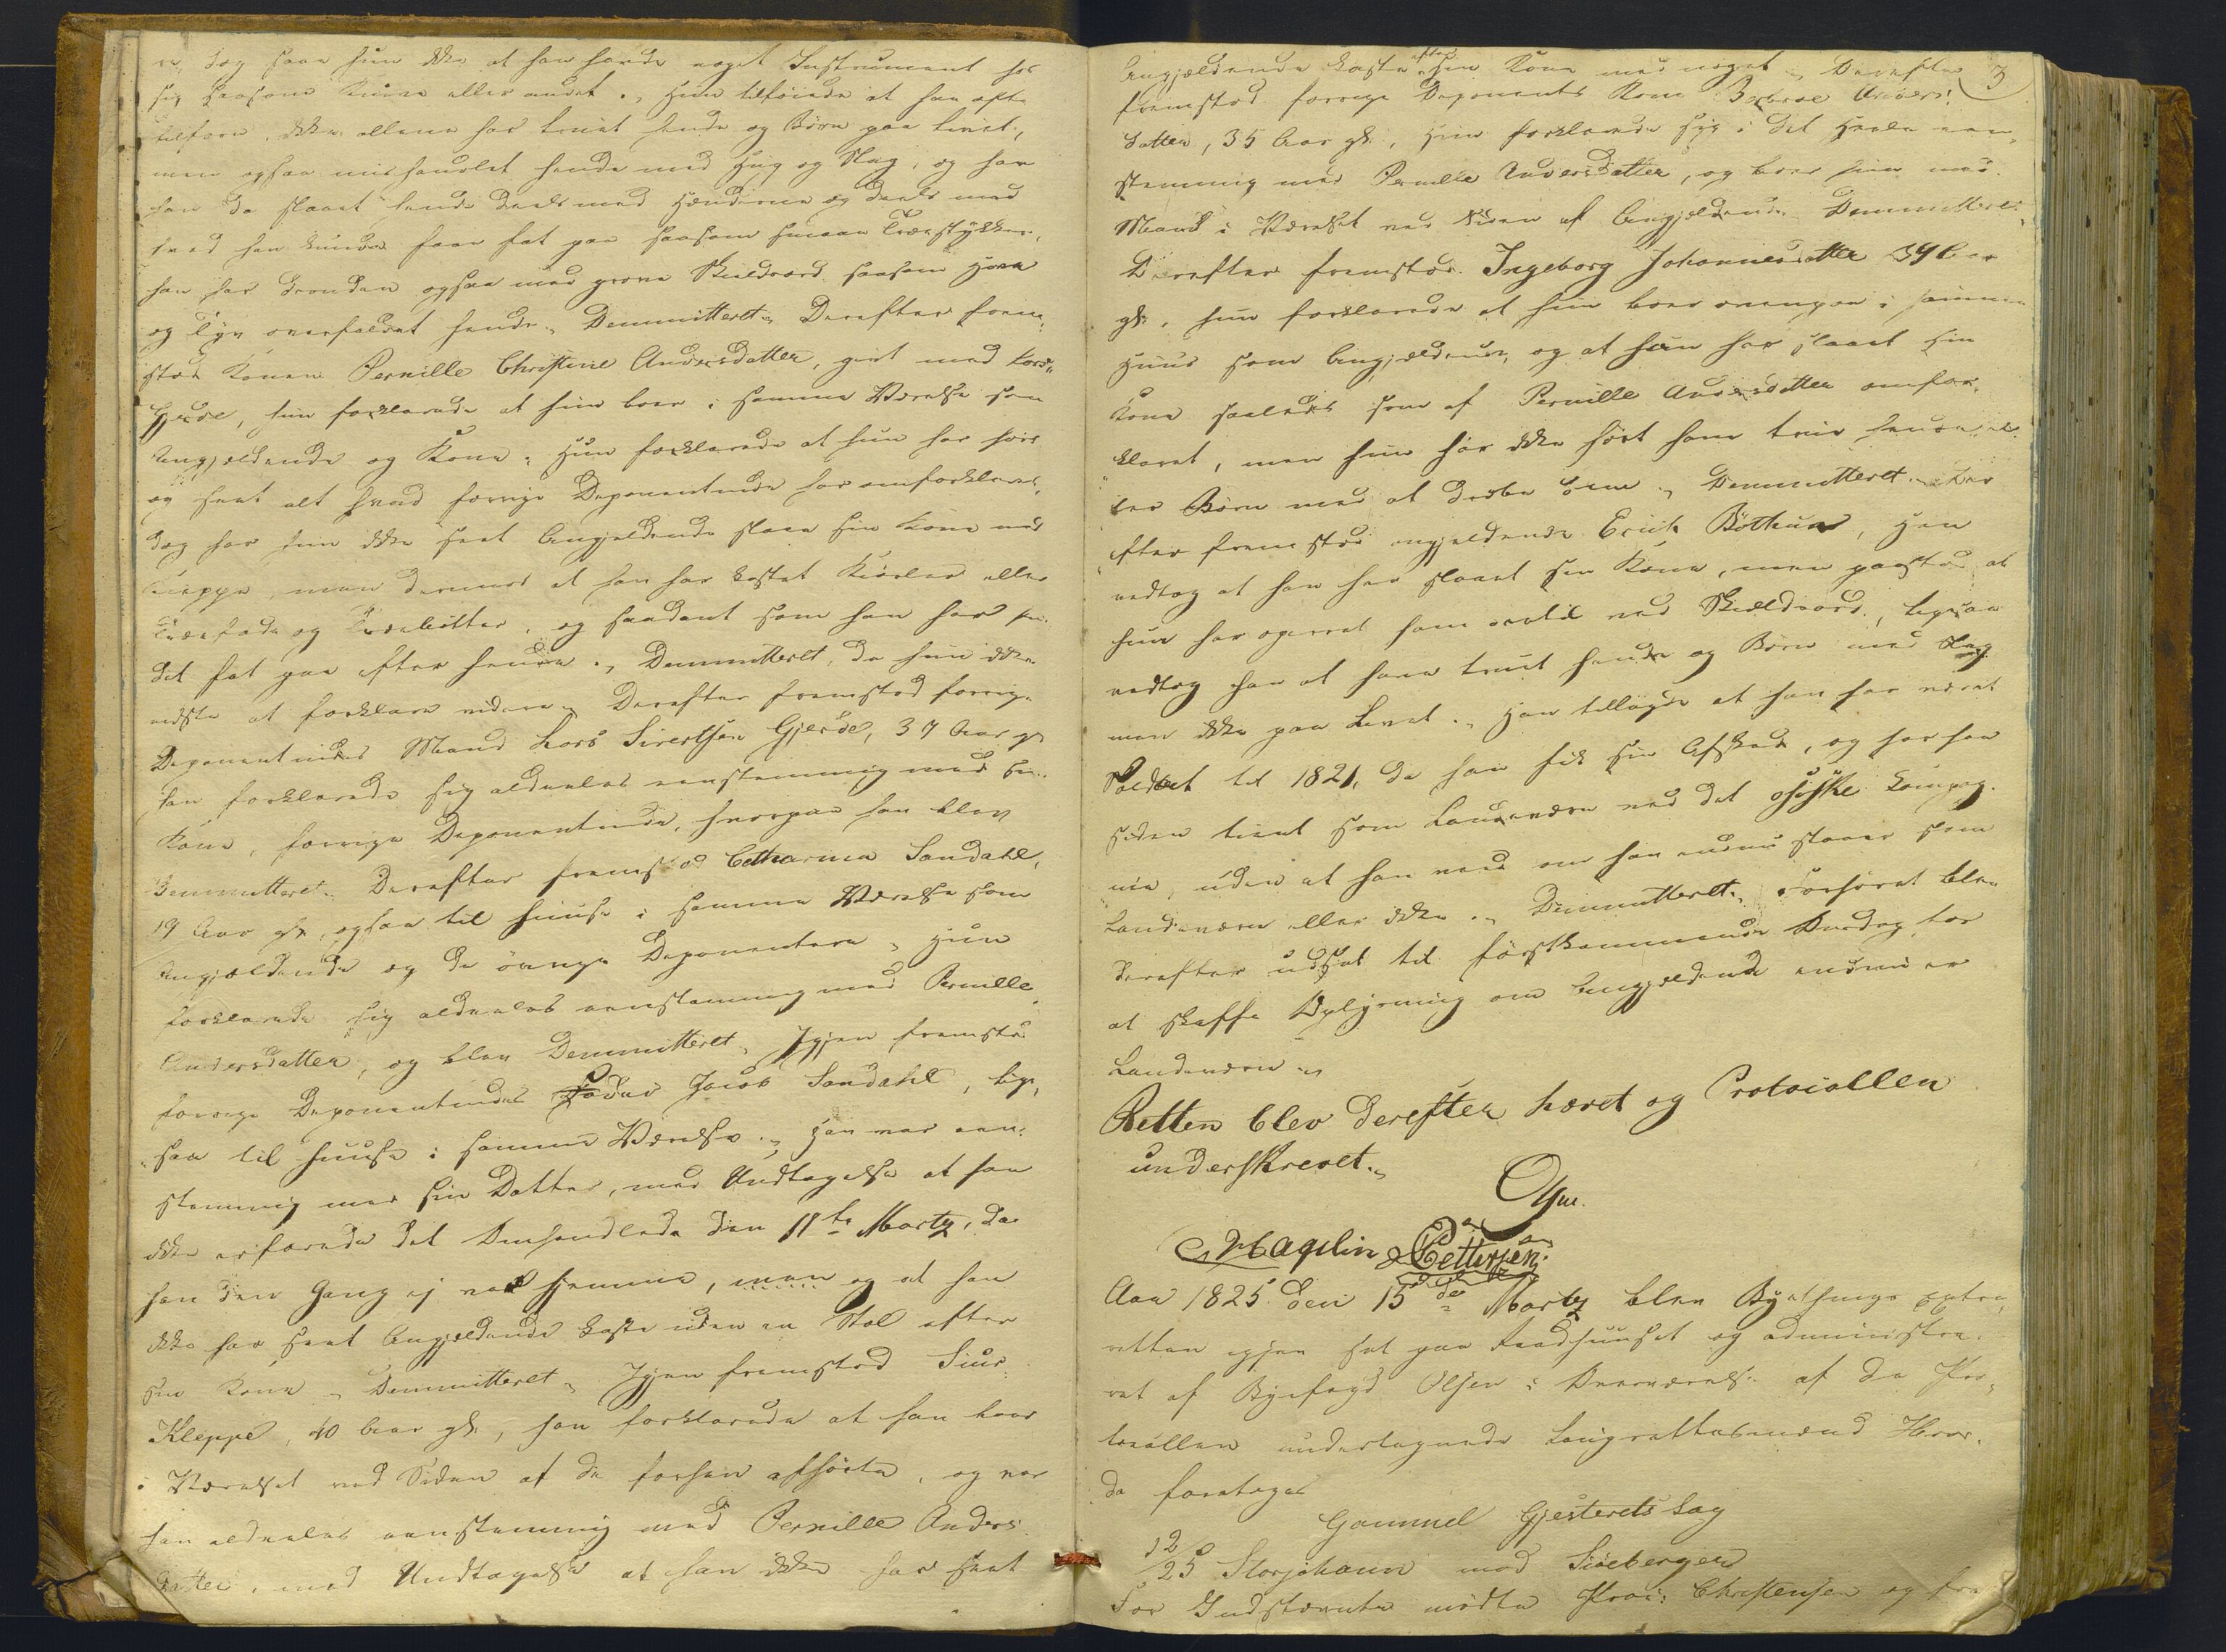 re, dog saae hun ikke at han havde noget Instrument hos
sig saasom Kniv eller andet. „ Hun tilføiede at han ofte
tilforn, ikke allene har truet hende og Børn paa Livet,
men ogsaa mishandlet hende med Hug og Slag, og har
han da slaaet hende deels med Hænderne og deels med
hvad han kunde faae fat paa saasom smaae Træstykker,
han har desuden ogsaa med grove Skieldsord saasom Hore
og Tyv overfaldet hende. „ Demmitteret. „ Derefter frem-
stod Konen Pernille Christine Andersdatter, givt med Lars
Gjerde, hun forklarede at hun boer i samme Værelse som
Angjældende og Kone. Hun forklarede at hun har hørt
og seet alt hvad forrige Deponentinde har omforklaret,
dog har hun ikke seet Angjeldende slaae sin Kone med
Kieppe, men derimod at han har kastet Kiørler eller
Træefade og Træebøtter, og saadant som han har kun-
det fat paa efter hende. „ Demmitteret, da hun ikke
vidste at forklare videre. „ Derefter fremstod forrige
Deponentindes Mand Lars Sivertsen Gjerde, 37 Aar gl.
han forklarede sig aldeeles eenstemmig med sin
Kone, forrige Deponentinde, hvorpaa han blev
Demmitteret. Derefter fremstod Catharina Sandahl,
19 Aar gl. ogsaa til huuse i samme Værelse som
Angjældende og de øvrige Deponentere, Hun
forklarede sig aldeeles eenstemmig med Pernille
Andersdatter, og blev Demmitteret, Igjen fremstod
forrige Deponentindes Fader Jacob Sandahl, lige-
saa til huuse i samme Værelse. „ Han var een-
stemmig med sin Datter, med Undtagelse at han
ikke erfarede det Omhandlede den 11te Martz, da
han den Gang ej var hjemme, men og at han
ikke har seet Angjeldende kaste uden en Stol efter
sin Kone „ Demmitteret „ Igjen fremstod Siur
Kleppe, 40 Aar gl., han forklarede at han boer
i Værelset ved Siden af de forhen afhørte, og var
han aldeeles eenstemmig med Pernille Anders-
datter, med Undtagelse at han ikke har seet
3
Angjældende kaste efter sin Kone med noget „ Derefter
fremstod forrige Deponents Kone Anders-
datter, 35 Aar gl., Hun forklarede sig i det Heele een-
stemmig med Pernille Andersdatter, og boer hun med
Mand i Værelset ved Siden af Angjældende. Demmitteret.
Derefter fremstod Ingeborg Johannesdatter 34 Aar
gl., hun forklarede at hun boer ovenpaa i samme
Huus som Angjældende, og at han har slaaet sin
Kone saaledes som af Pernille Andersdatter omfor-
klaret, men hun har ikke hørt ham true hende el-
ler Børn med at dræbe dem „ Demmitteret. Der-
efter fremstod angjeldende Erich Bøthun, Han
vedtog at han har slaaet sin Kone, men paastod at
hun har opirret ham altid ved Skieldsord, ligesaa
vedtog han at have truet hende og Børn med Slag
men ikke paa Livet. „ Han tillagde at han har været
Soldat til 1821, da han fik sin Afskeed, og har han
siden tient som Landeværn ved det Kompag-
nie, uden at han veed om han endnu staaer som
Landeværn eller ikke. „ Demmitteret. „ Forhøret blev
derefter udsat til førstkommende Onsdag for
at skaffe Oplysning om Angjeldende endnu er
Landeværn „
Retten blev derefter hævet og Protocollen
underskrevet. „
Olsen.
Maqelin Pettersen
Aar 1825 den 15de Martz blev Byethings extra
retten igjen sat paa Raadhuuset og administre-
ret af Byefogd Olsen i Overværelse af de Pro-
tocollen undertegnede Laugrettesmænd Hvor-
da foretages
Gammel Gjesterets Sag
12/25 Storjohann mod Siøeberger
For Indstevnte mødte Proc: Christensen og fre